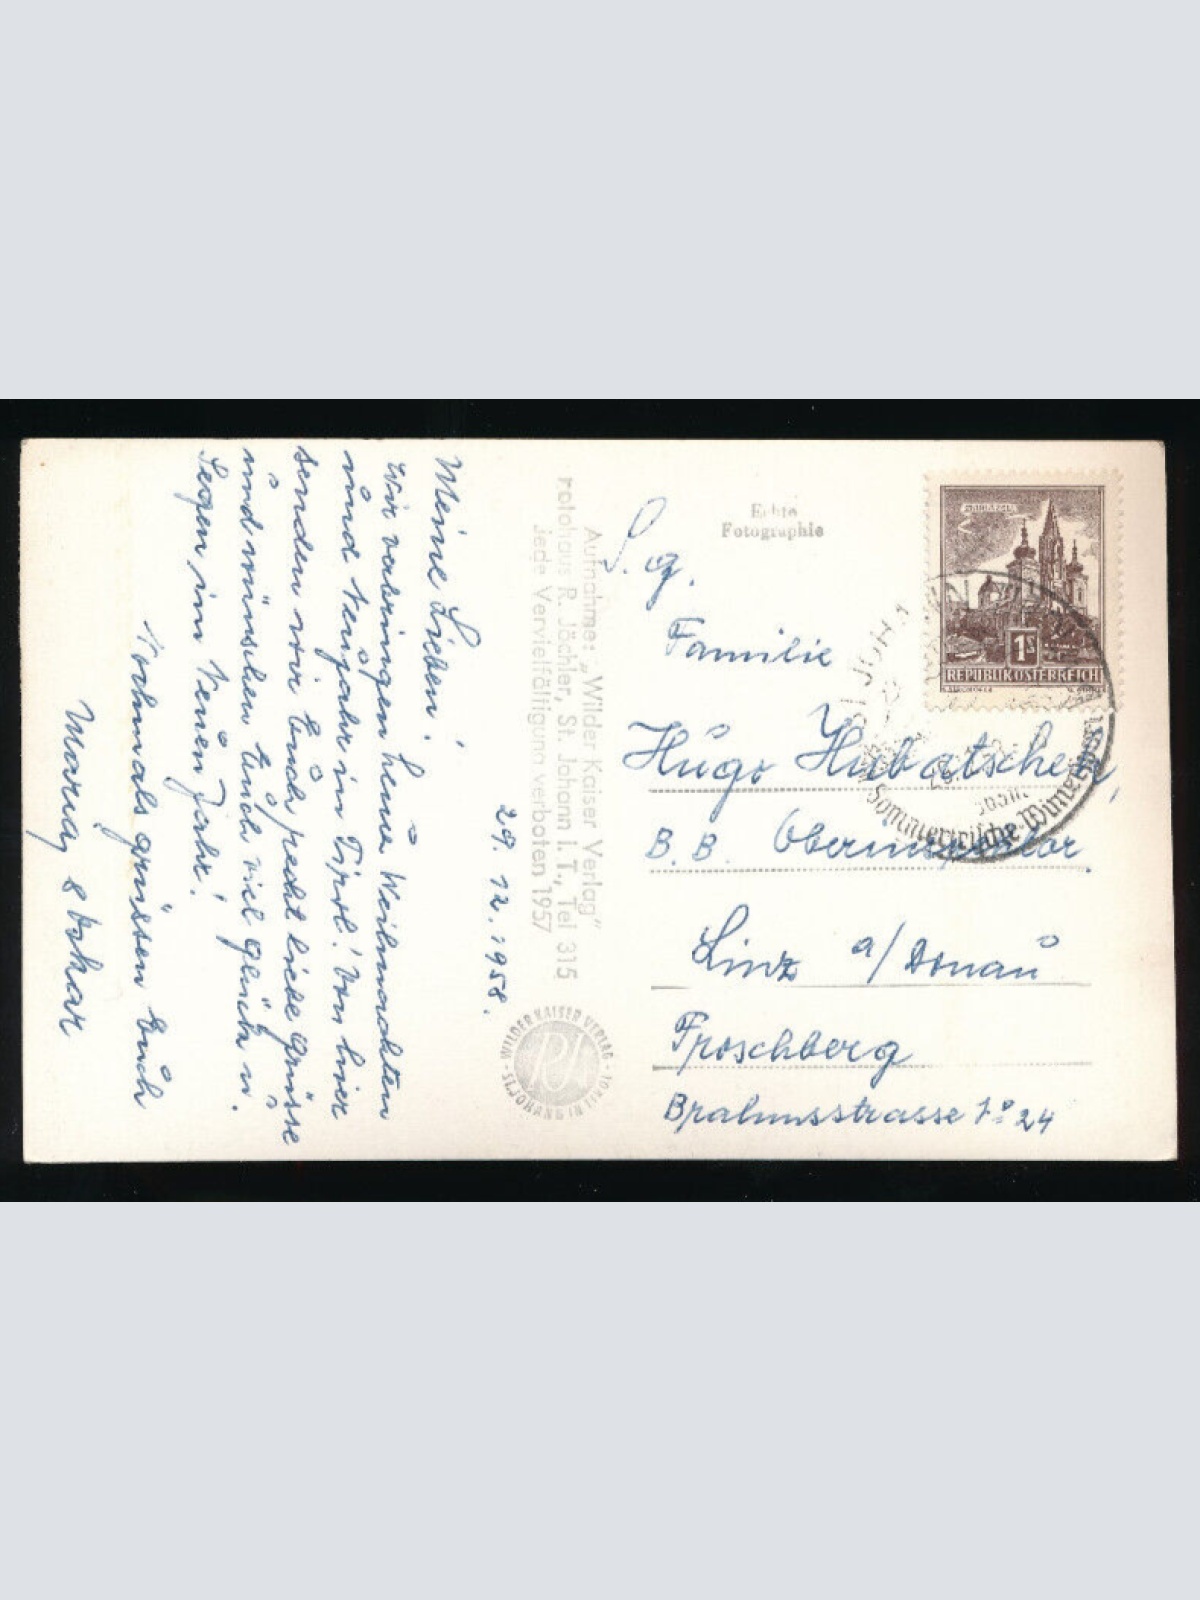 29. 12. 1958.
Meine Lieben!
Wir vebringen heuer Weihnachten
und Neujahr in Tirol! Von hier
senden wir Euch recht liebe Grüsse
und wünschen Euch viel Glück u.
Segen im Neuen Jahr!
Nochmals grüssen Euch
Maria &
Aufnahme: „Wilder Kaiser Verlag"
Fotohaus R. Jöchler, St. Johann i. T., Tel 315
Jede Vervielfältigung verboten 1957
WILDER KAISER VERLAG - ST. JOHANN IN TIROL
Echte
Fotographie
MARIAZELL
1S
REPUBLIK ÖSTERREICH
ST. JOHANN
Sommerfrische
S. g.
Familie
Hugo Hubatschek,
B. B. Oberinspektor
Linz a/Donau
Froschberg
Brahmsstrasse No 24